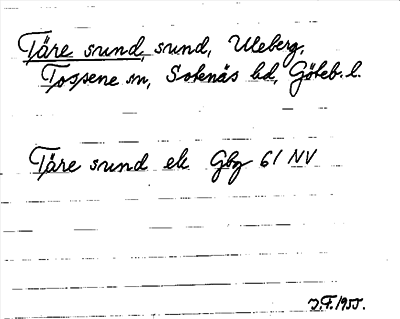 Täre sund, sund, Uleberg,
Tossene sn, Sotenäs hd, Göteb. l.
Täre sund ek Gbg 61 NV
J.F. 1955.